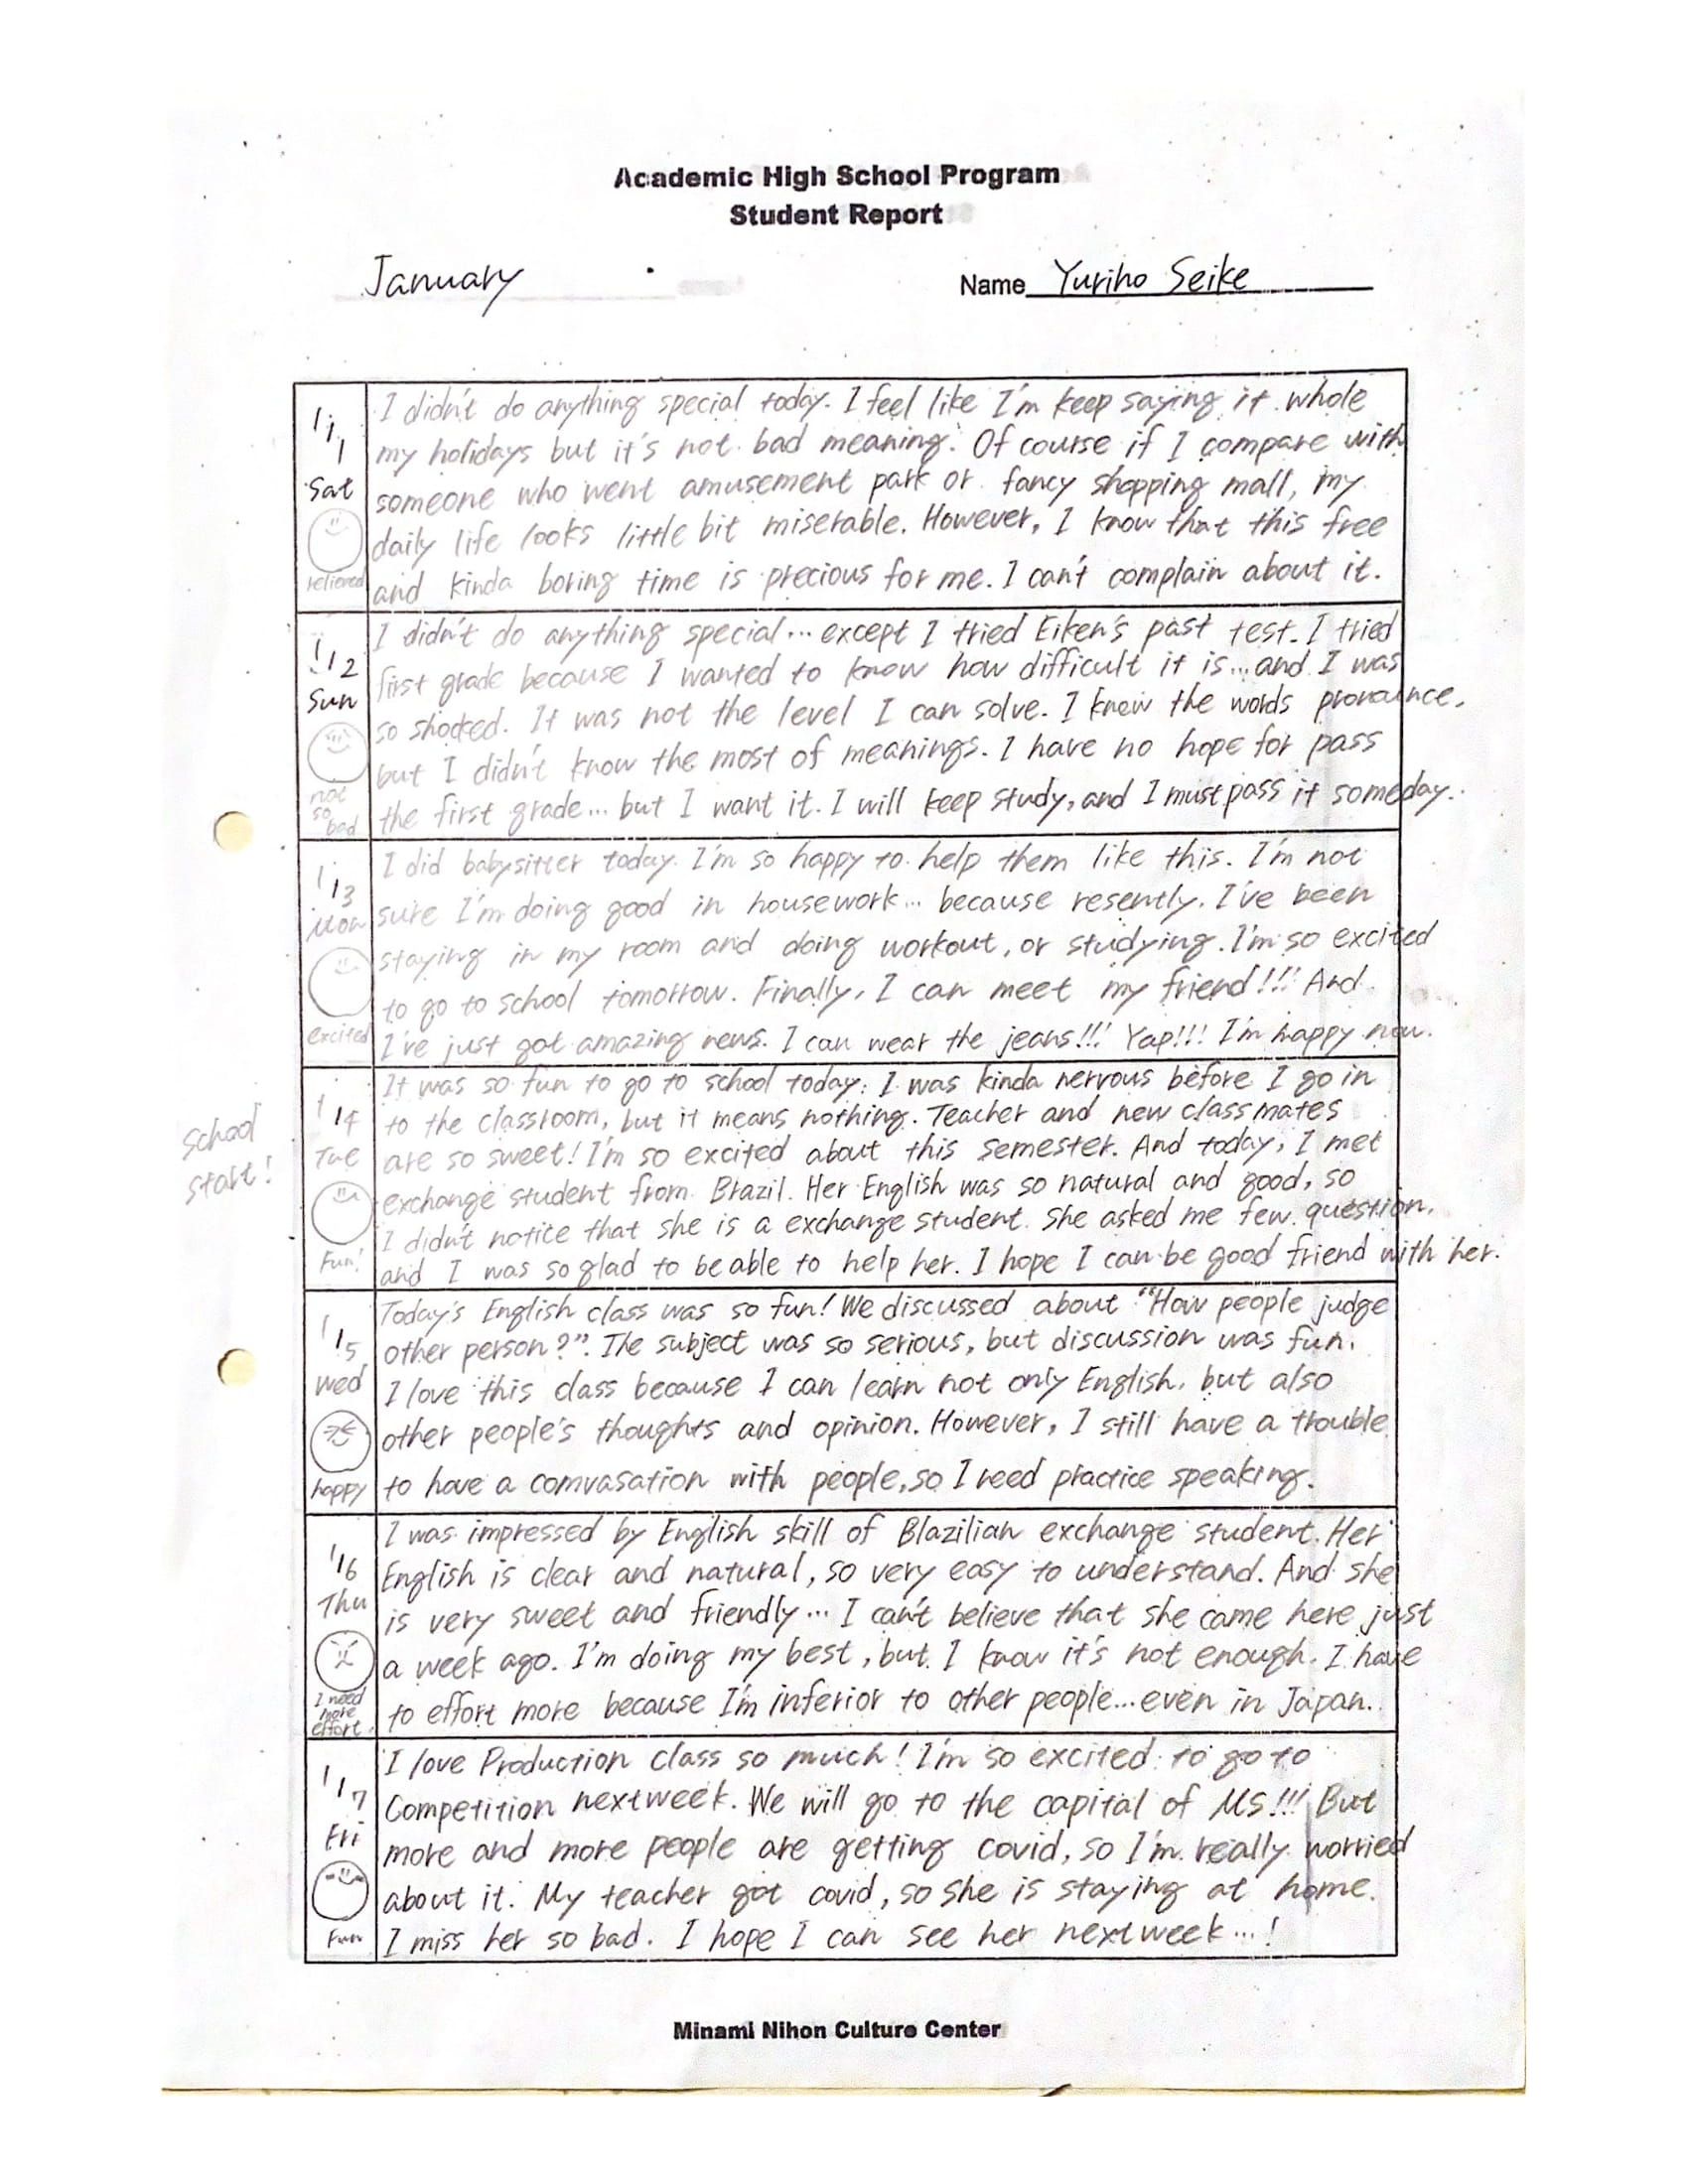 Academic High School Program
Student Report
January
Name Yuriho Seike
1/11
Sat
relieved
I didn't do anything special today. I feel like I'm keep saying it whole
my holidays but it's not bad meaning. Of course if I compare with
someone who went amusement park or fancy shopping mall, my
daily life looks little bit miserable. However, I know that this free
and kinda boring time is precious for me. I can't complain about it.
1/12
Sun
not
so
bad
I didn't do anything special... except I tried Eiken's past test. I tried
first grade because I wanted to know how difficult it is... and I was
so shocked. It was not the level I can solve. I knew the words pronounce,
but I didn't know the most of meanings. I have no hope for pass
the first grade... but I want it. I will keep study, and I must pass it someday.
1/13
Mon
excited
I did babysitter today. I'm so happy to help them like this. I'm not
sure I'm doing good in housework... because resently, I've been
staying in my room and doing workout, or studying. I'm so excited
to go to school tomorrow. Finally, I can meet my friend!!! And
I've just got amazing news. I can wear the jeans!!! Yap!!! I'm happy now.
school
start!
1/14
Tue
Fun!
It was so fun to go to school today. I was kinda nervous before I go in
to the classroom, but it means nothing. Teacher and new classmates
are so sweet! I'm so excited about this semester. And today, I met
exchange student from Brazil. Her English was so natural and good, so
I didn't notice that she is a exchange student. She asked me few question,
and I was so glad to be able to help her. I hope I can be good friend with her.
1/15
Wed
happy
Today's English class was so fun! We discussed about "How people judge
other person?". The subject was so serious, but discussion was fun.
I love this class because I can learn not only English, but also
other people's thoughts and opinion. However, I still have a trouble
to have a comvasation with people, so I need practice speaking.
1/16
Thu
I need
more
effort.
I was impressed by English skill of Blazilian exchange student. Her
English is clear and natural, so very easy to understand. And she
is very sweet and friendly... I can't believe that she came here just
a week ago. I'm doing my best, but I know it's not enough. I have
to effort more because I'm inferior to other people... even in Japan.
1/17
Fri
Fun
I love Production class so much! I'm so excited to go to
Competition nextweek. We will go to the capital of MS!!! But
more and more people are getting covid, so I'm really worried
about it. My teacher got covid, so she is staying at home.
I miss her so bad. I hope I can see her nextweek...!
Minami Nihon Culture Center